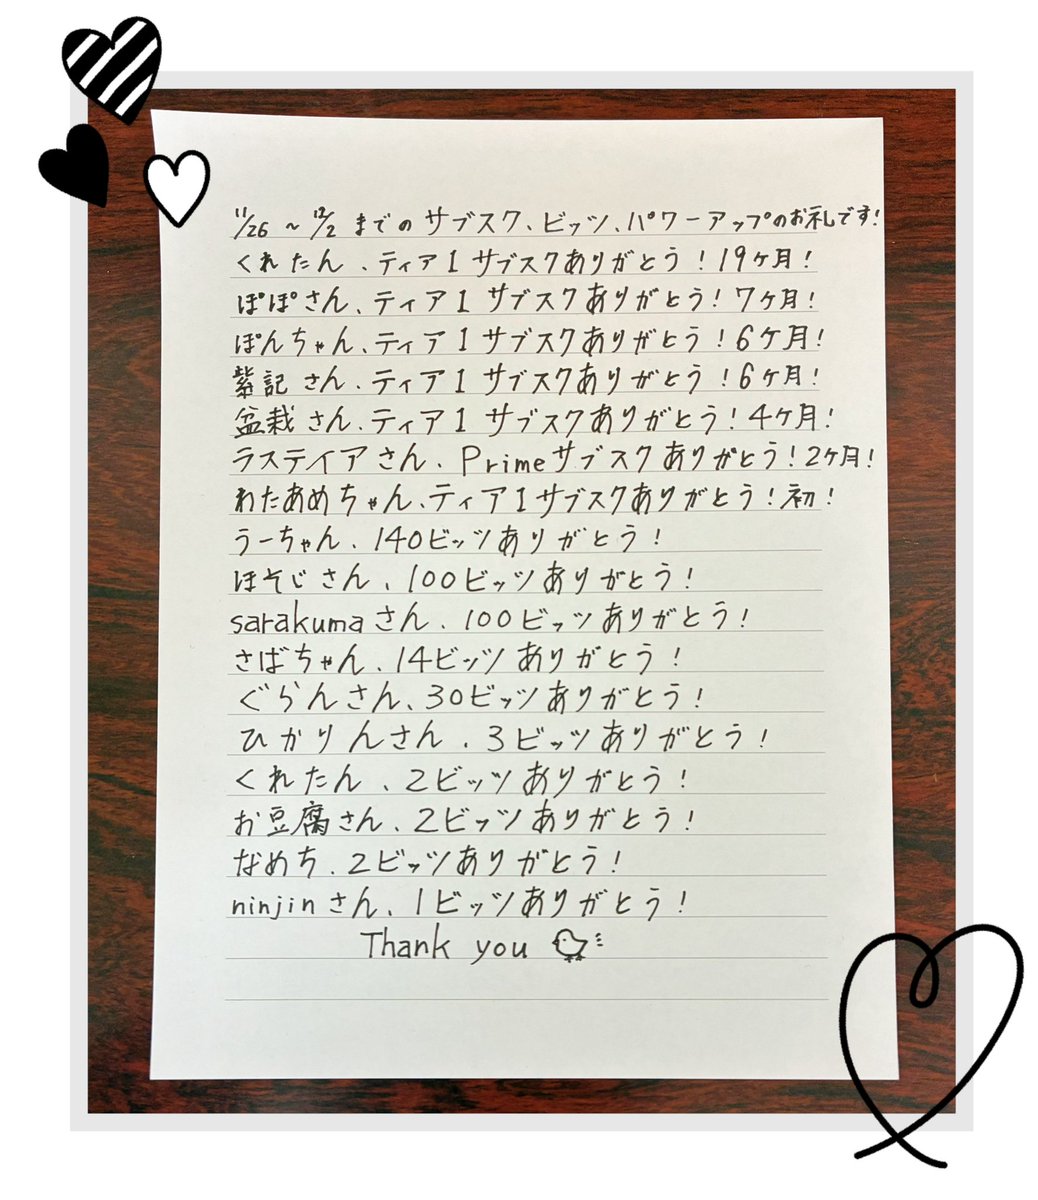 11/26〜12/2までのサブスク、ビッツ、パワーアップのお礼です!
くれたん、ティア1サブスクありがとう!19ヶ月!
ぽぽさん、ティア1サブスクありがとう!7ヶ月!
ぽんちゃん、ティア1サブスクありがとう!6ヶ月!
紫記さん、ティア1サブスクありがとう!6ヶ月!
盆栽さん、ティア1サブスクありがとう!4ヶ月!
ラステイアさん、Primeサブスクありがとう!2ヶ月!
わたあめちゃん、ティア1サブスクありがとう!初!
うーちゃん、140ビッツありがとう!
ほそじさん、100ビッツありがとう!
sarakumaさん、100ビッツありがとう!
さばちゃん、14ビッツありがとう!
ぐらんさん、30ビッツありがとう!
ひかりんさん、3ビッツありがとう!
くれたん、2ビッツありがとう!
お豆腐さん、2ビッツありがとう!
なめち、2ビッツありがとう!
ninjinさん、1ビッツありがとう!
Thank you